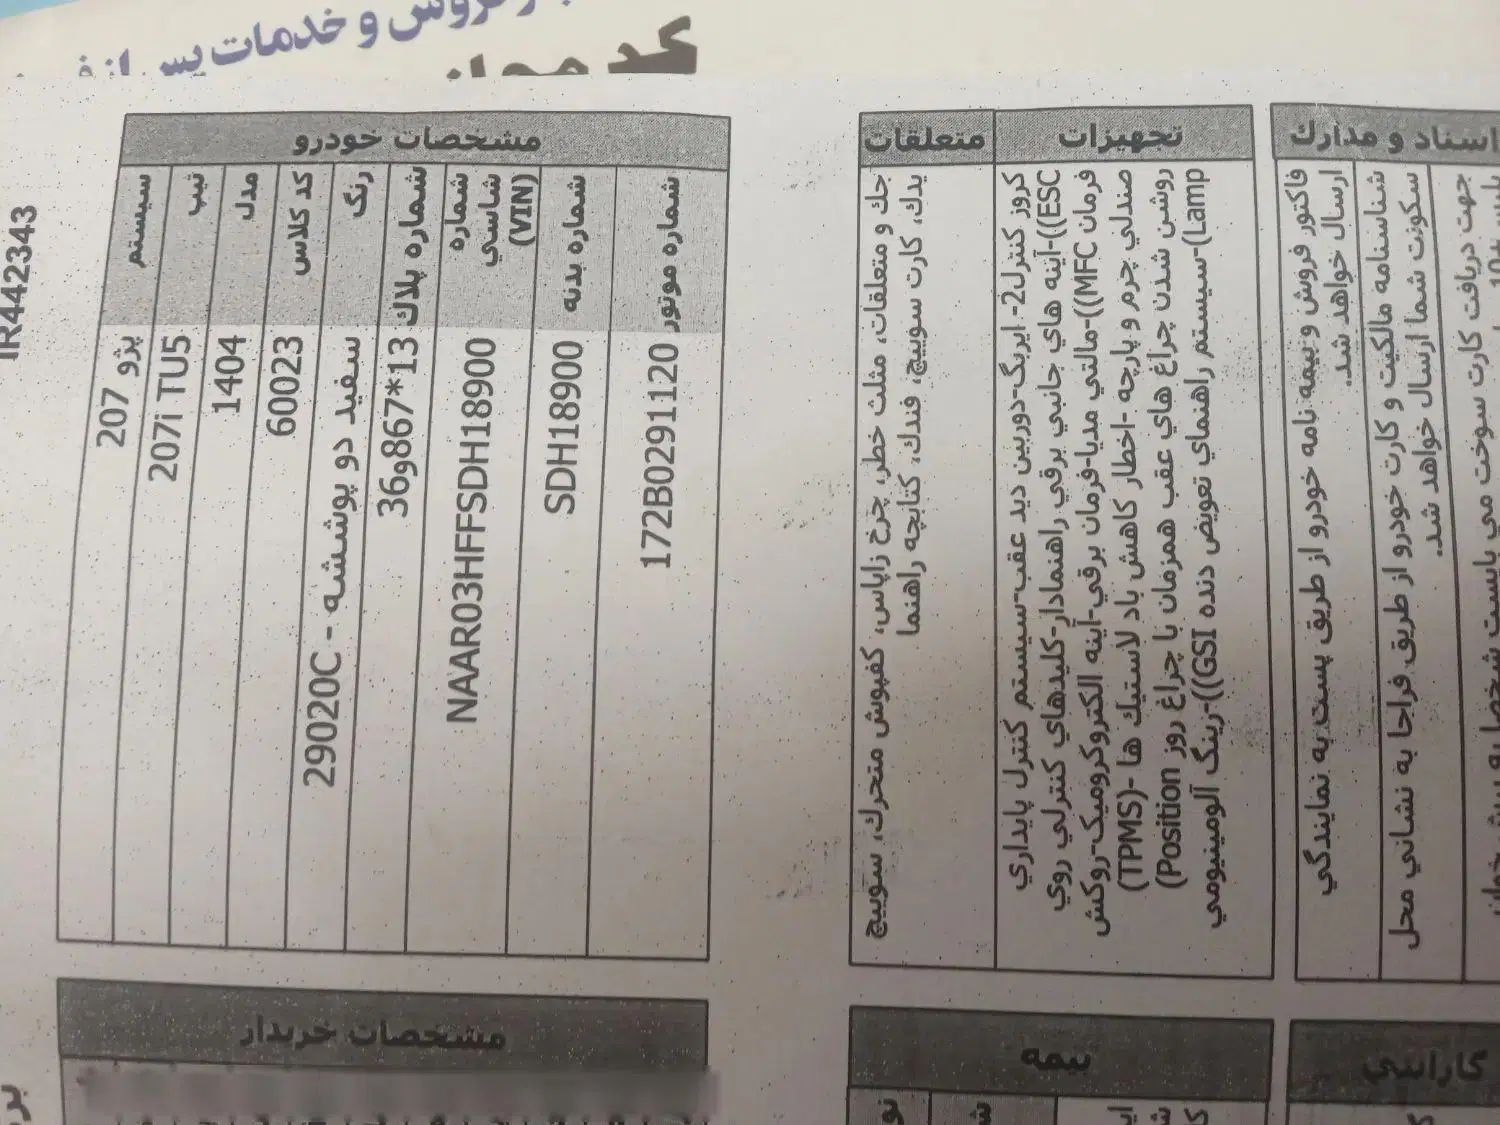 فروش و خدمات پس از ف
IR442343
مشخصات خودرو
سیستم پژو 207
تیپ 207i TU5
مدل 1404
کد کلاس 60023
رنگ سفید دو پوششه - 29020C
شماره پلاك 13*867و36
شماره شاسي (VIN) NAAR03HFFSDH18900
شماره بدنه SDH18900
شماره موتور 172B0291120
مشخصات خریدار
متعلقات
جك و متعلقات، مثلث خطر، چرخ زاپاس، کفپوش متحرك، سوییچ
یدك، کارت سوییچ، فندك، کتابچه راهنما
تجهیزات
کروز کنترل2- ایربگ-دوربین دید عقب-سیستم کنترل پایداري
ESC))-آینه هاي جانبي برقي راهنمادار-کلیدهاي کنترلي روي
فرمان MFC))-مالتي مدیا-فرمان برقي-آینه الکتروکرومیک-روکش
صندلي چرم و پارچه -اخطار کاهش باد لاستیك ها -(TPMS)
روشن شدن چراغ هاي عقب همزمان با چراغ روز Position)
Lamp)-سیستم راهنماي تعویض دنده GSI))-رینگ آلومینیومي
بیمه
اسناد و مدارك
فاکتور فروش و بیمه نامه خودرو از طریق پست به نمایندگي
ارسال خواهد شد.
شناسنامه مالکیت و کارت خودرو از طریق فراجا به نشاني محل
سکونت شما ارسال خواهد شد.
جهت دریافت کارت سوخت مي بایست شخصا به پیشخوان
گارانتي